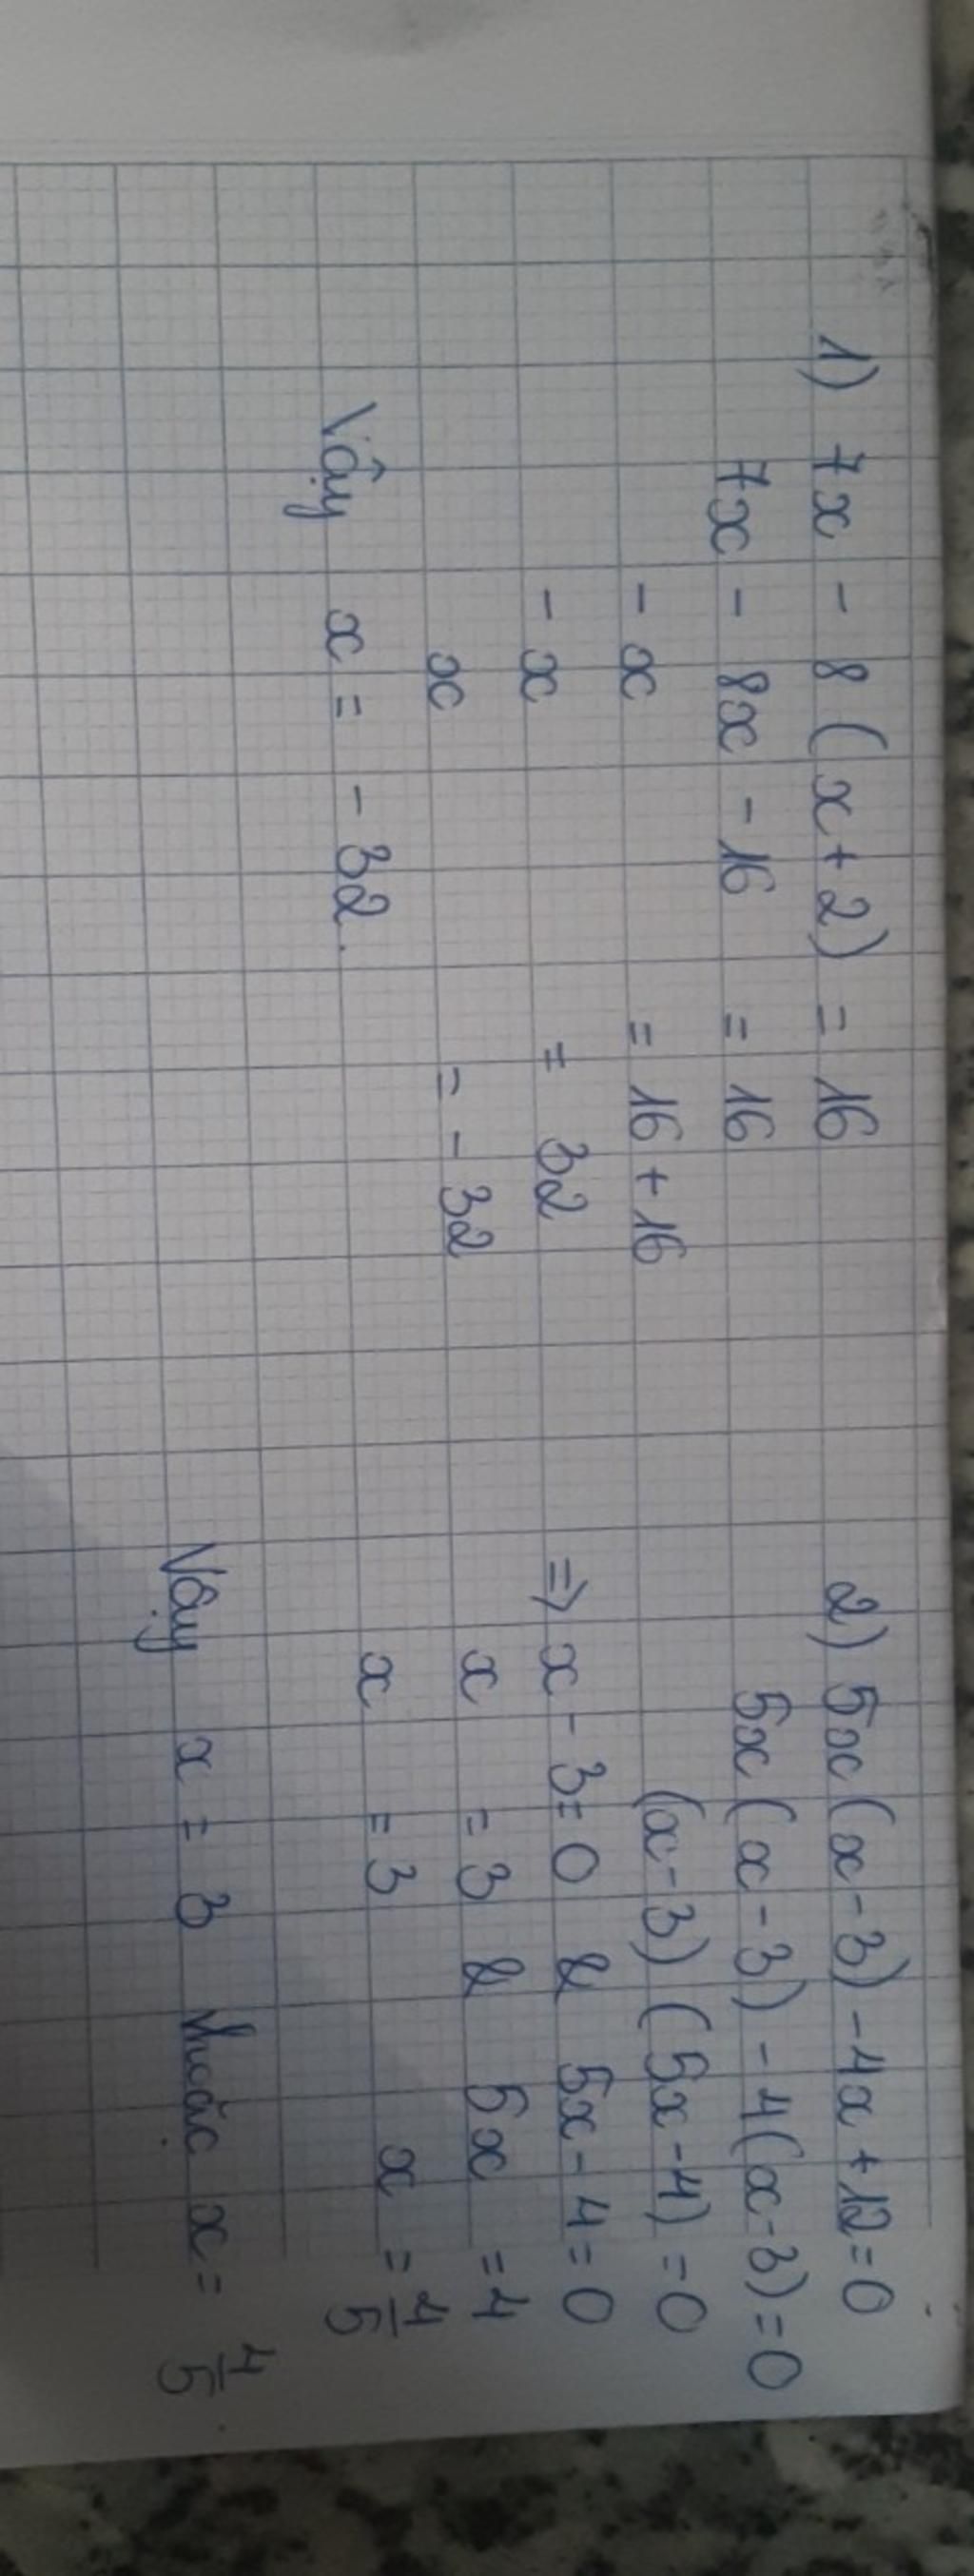 1) 7x - 8 (x + 2) = 16
7x - 8x - 16 = 16
- x = 16 + 16
- x = 32
x = - 32
Vậy x = - 32.
2) 5x (x - 3) - 4x + 12 = 0
5x (x - 3) - 4 (x - 3) = 0
(x - 3) (5x - 4) = 0
=> x - 3 = 0 & 5x - 4 = 0
x = 3 & 5x = 4
x = 3 x = 4/5
Vậy x = 3 hoặc x = 4/5